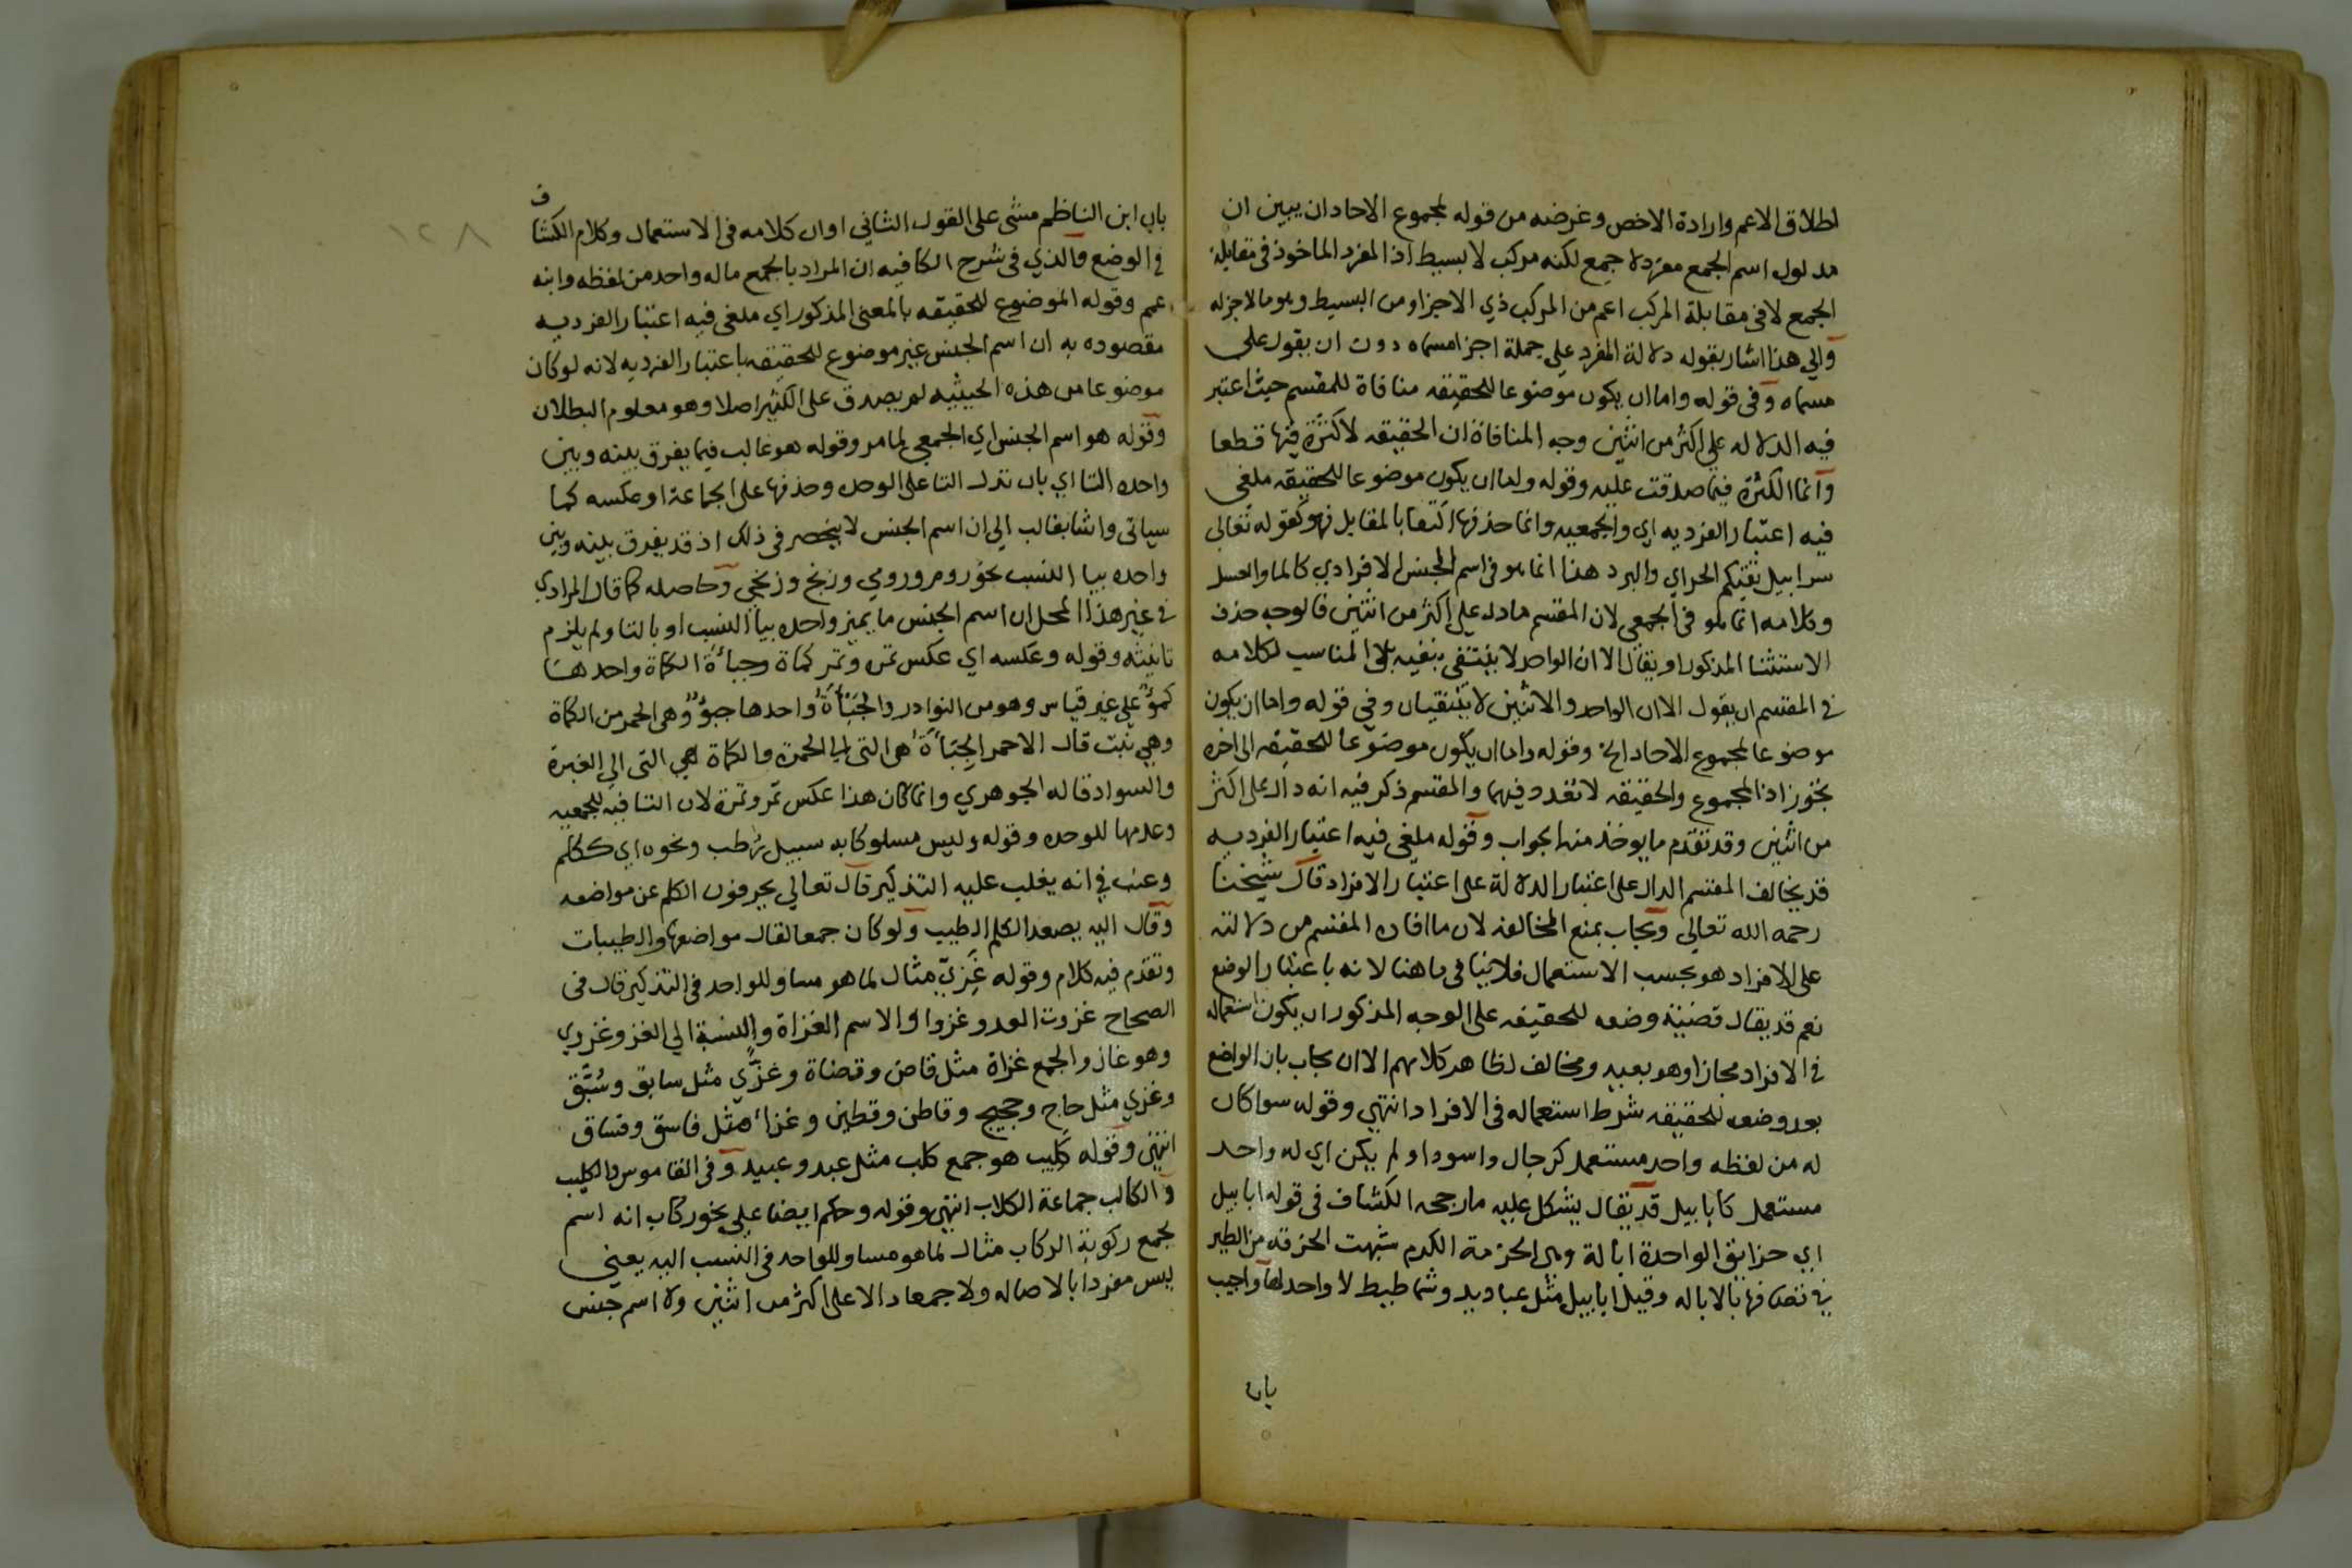 اطلاق الاعم وارادة الاخص وغرضه من قوله لمجموع الاحاد ان يبين ان
مدلول اسم الجمع مفرد لا جمع لكنه مركب لا بسيط اذ المفرد الماخوذ في مقابلة
الجمع لا في مقابلة المركب اعم من المركب ذي الاجزا ومن البسيط وهو مالا جزله
والي هذا اشار بقوله دلالة المفرد على جملة اجزا مسماه دون ان يقول على
مسماه وفي قوله واما ان يكون موضوعا للحقيقه منافاة للمقسم حيث اعتبر
فيه الدلاله على اكثر من اثنين وجه المنافاة ان الحقيقه لا كثرة فيها قطعا
وانما الكثرة فيما صدقت عليه وقوله واما ان يكون موضوعا للحقيقه ملغى
فيه اعتبار الفرديه اي والجمعيه وانما حذفها اكتفا بالمقابل فهو كقوله تعالى
سرابيل تقيكم الحر اي والبرد هذا انما هو في اسم الجنس الافرادي كالما والعسل
وكلامه انما هو في الجمعي لان المقسم مادل على اكثر من اثنين فالوجه حذف
الاستثنا المذكور او يقال الا ان الواحد لا ينتفي بنفيه بل المناسب لكلامه
في المقسم ان يقول الا ان الواحد والاثنين لا ينتفيان وفي قوله واما ان يكون
موضوعا لمجموع الاحاد الخ وقوله واما ان يكون موضوعا للحقيقه الى اخره
تجوز اذ المجموع والحقيقه لا تعدد فيهما والمقسم ذكر فيه انه دال على اكثر
من اثنين وقد تقدم ما يوخذ منه الجواب وقوله ملغى فيه اعتبار الفرديه
قد يخالف المقسم الدال على اعتبار الدلالة على اعتبار الافراد قال شيخنا
رحمه الله تعالي ويجاب بمنع المخالفه لان ما افاده المقسم من دلالته
على الافراد هو بحسب الاستعمال فلا ينافي ما هنا لانه باعتبار الوضع
نعم قد يقال قضية وضعه للحقيقه على الوجه المذكور ان يكون استعماله
في الافراد مجازا وهو بعيد ومخالف لظاهر كلامهم الا ان يجاب بان الواضع
بعد وضعه للحقيقه شرط استعماله في الافراد انتهي وقوله سواكان
له من لفظه واحد مستعمل كرجال واسود او لم يكن اي له واحد
مستعمل كابابيل قد يقال يشكل عليه مارجحه الكشاف في قوله ابابيل
اي حزايق الواحدة ابالة وهي الحزمة الكبرى شبهت الحزقة من الطير
في تضامها بالاباله وقيل ابابيل مثل عباديد وشماطيط لا واحد لها واجيب
بان
١٢٨
بان ابن الناظم مشى على القول الثاني او ان كلامه في الاستعمال وكلام الكشاف
في الوضع والذي في شرح الكافيه ان المراد بالجمع ماله واحد من لفظه وانه
عم وقوله الموضوع للحقيقه بالمعنى المذكور اي ملغى فيه اعتبار الفرديه
مقصوده به ان اسم الجنس غير موضوع للحقيقه باعتبار الفرديه لانه لو كان
موضوعا من هذه الحيثيه لم يصدق على الكثير اصلا وهو معلوم البطلان
وقوله هو اسم الجنس اي الجمعي لما مر وقوله هو غالب فيما يفرق بينه وبين
واحده التا اي بان تدل التا على الوحده وحذفها على الجماعة او عكسه كما
سياتي واشار بغالب الي ان اسم الجنس لا ينحصر في ذلك اذ قد يفرق بينه وبين
واحده بيا النسب نحو روم ورومي وزنج وزنجي وحاصله كما قال المرادي
في غير هذا المحل ان اسم الجنس ما يميز واحده بيا النسب او بالتا ولم يلزم
تانيثه وقوله وعكسه اي عكس تمر وتمرة كماة وجبأة الكماة واحدها
كمؤ على غير قياس وهو من النوادر والجبأة واحدها جبؤ وهي الحمر من الكماة
وهي نبت قال الاحمر الجبأة هي التي الي الحمرة والكماة هي التي الي الغبرة
والسواد قاله الجوهري وانما كان هذا عكس تمر وتمرة لان التا فيه للجمعيه
وعدمها للوحده وقوله وليس مسلوكا به سبيل رطب ونحوه اي ككلم
وعنب في انه يغلب عليه التذكير قال تعالي يحرفون الكلم عن مواضعه
وقال اليه يصعد الكلم الطيب ولو كان جمعا لقال مواضعها والطيبات
وتقدم فيه كلام وقوله غزيّ مثال لما هو مساو للواحد في التذكير قال في
الصحاح غزوت العدو غزوا والاسم الغزاة والنسبة الي الغزو غزوي
وهو غاز والجمع غزاة مثل قاض وقضاة وغزّي مثل سابق وسبّق
وغزي مثل حاج وحجيج وقاطن وقطين وغزاء مثل فاسق وفساق
انتهي وقوله كليب هو جمع كلب مثل عبد وعبيد وفي القاموس والكليب
والكالب جماعة الكلاب انتهي وقوله وحكم ايضا على نحو ركاب انه اسم
لجمع ركوبة الركاب مثال لما هو مساو للواحد في النسب اليه يعني
ليس مفردا بالاصاله ولا جمعا دالا على اكثر من اثنين ولا اسم جنس